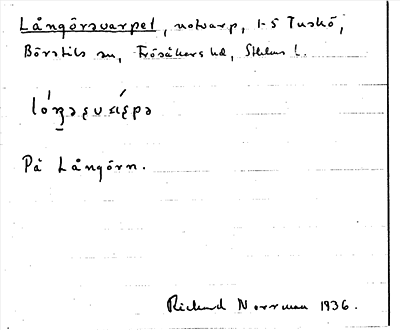 Långörsvarpet, notvarp, 1-5 Tuskö,
Börstils sn, Frösåkers hd, Sthlms l.
På Långörn.
Richard Norrman 1936.